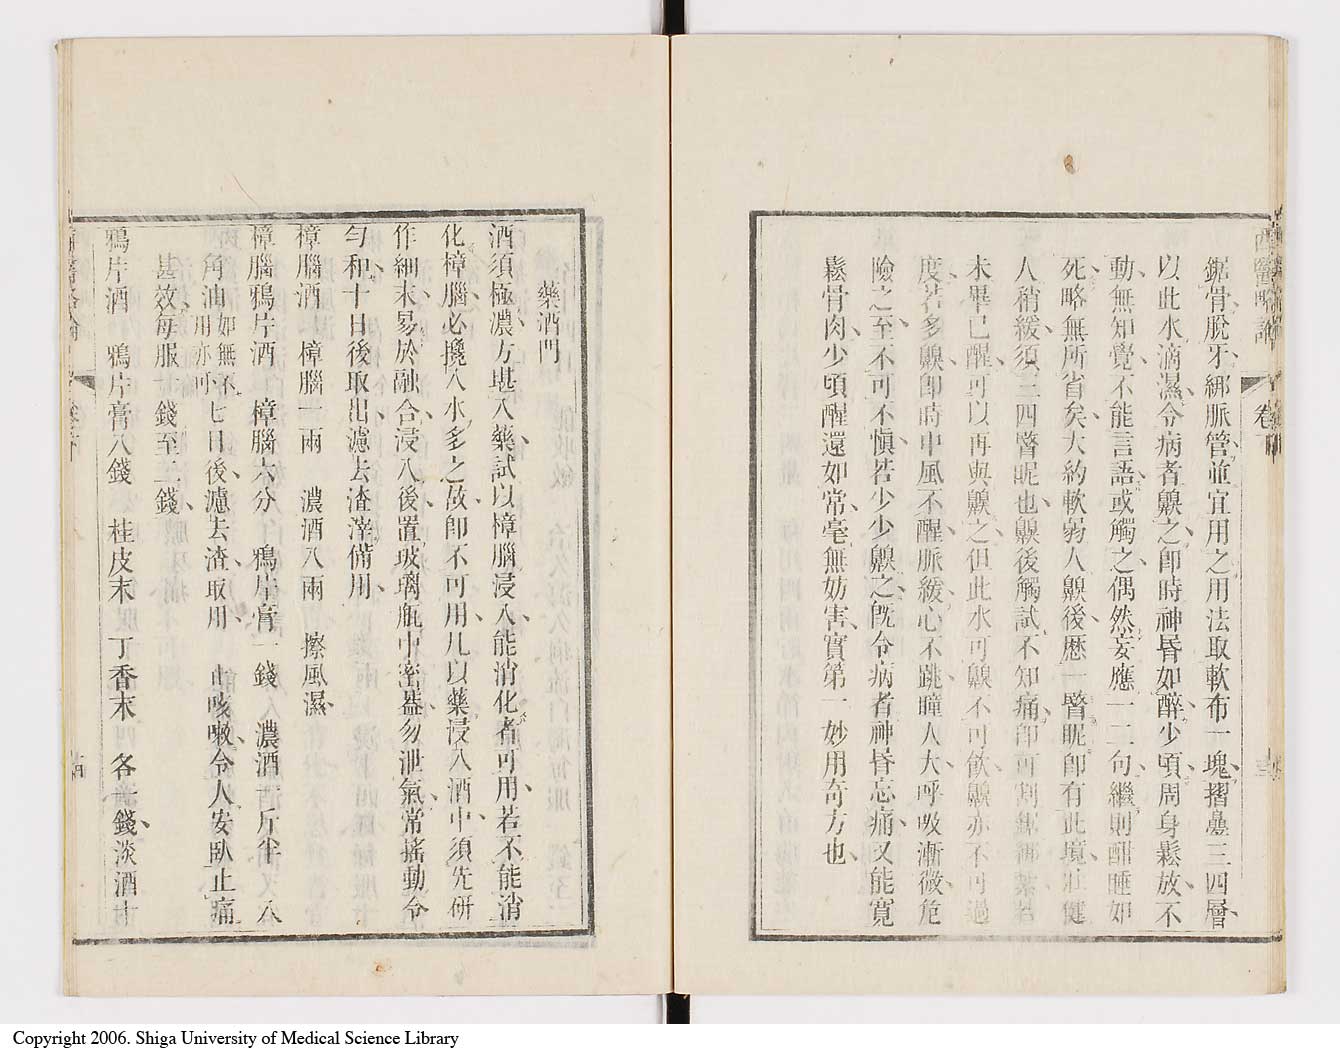 西醫略論 卷下
鋸骨脫牙綁脈管並宜用之用法取軟布一塊摺疊三四層
以此水滴濕令病者齅之卽時神昏如醉少頃周身鬆放不
動無知覺不能言語或觸之偶然妄應一二句繼則酣睡如
死略無所省矣大約軟弱人齅後歷一瞥眤卽有此境壯健
人稍緩須三四瞥眤也齅後觸試不知痛卽可割鋸綁紮若
未畢已醒可以再與齅之但此水可齅不可飲齅亦不可過
度若多齅卽時中風不醒脈緩心不跳瞳人大呼吸漸微危
險之至不可不愼若少少齅之旣令病者神昏忘痛又能寬
鬆骨肉少頃醒還如常毫無妨害實第一妙用奇方也
藥酒門
酒須極濃方堪入藥試以樟腦浸入能消化者可用若不能消
化樟腦必攙入水多之故卽不可用凡以藥浸入酒中須先研
作細末易於融合浸入後置玻璃瓶中密葢勿泄氣常搖動令
勻和十日後取出濾去渣滓備用
樟腦酒 樟腦一兩 濃酒八兩 擦風濕
樟腦鴉片酒 樟腦六分 鴉片膏一錢 濃酒一斤半 八
角油如無不用亦可 七日後濾去渣取用 止咳嗽令人安臥止痛
甚效每服一錢至二錢
鴉片酒 鴉片膏八錢 桂皮末 丁香末 各一錢淡酒十